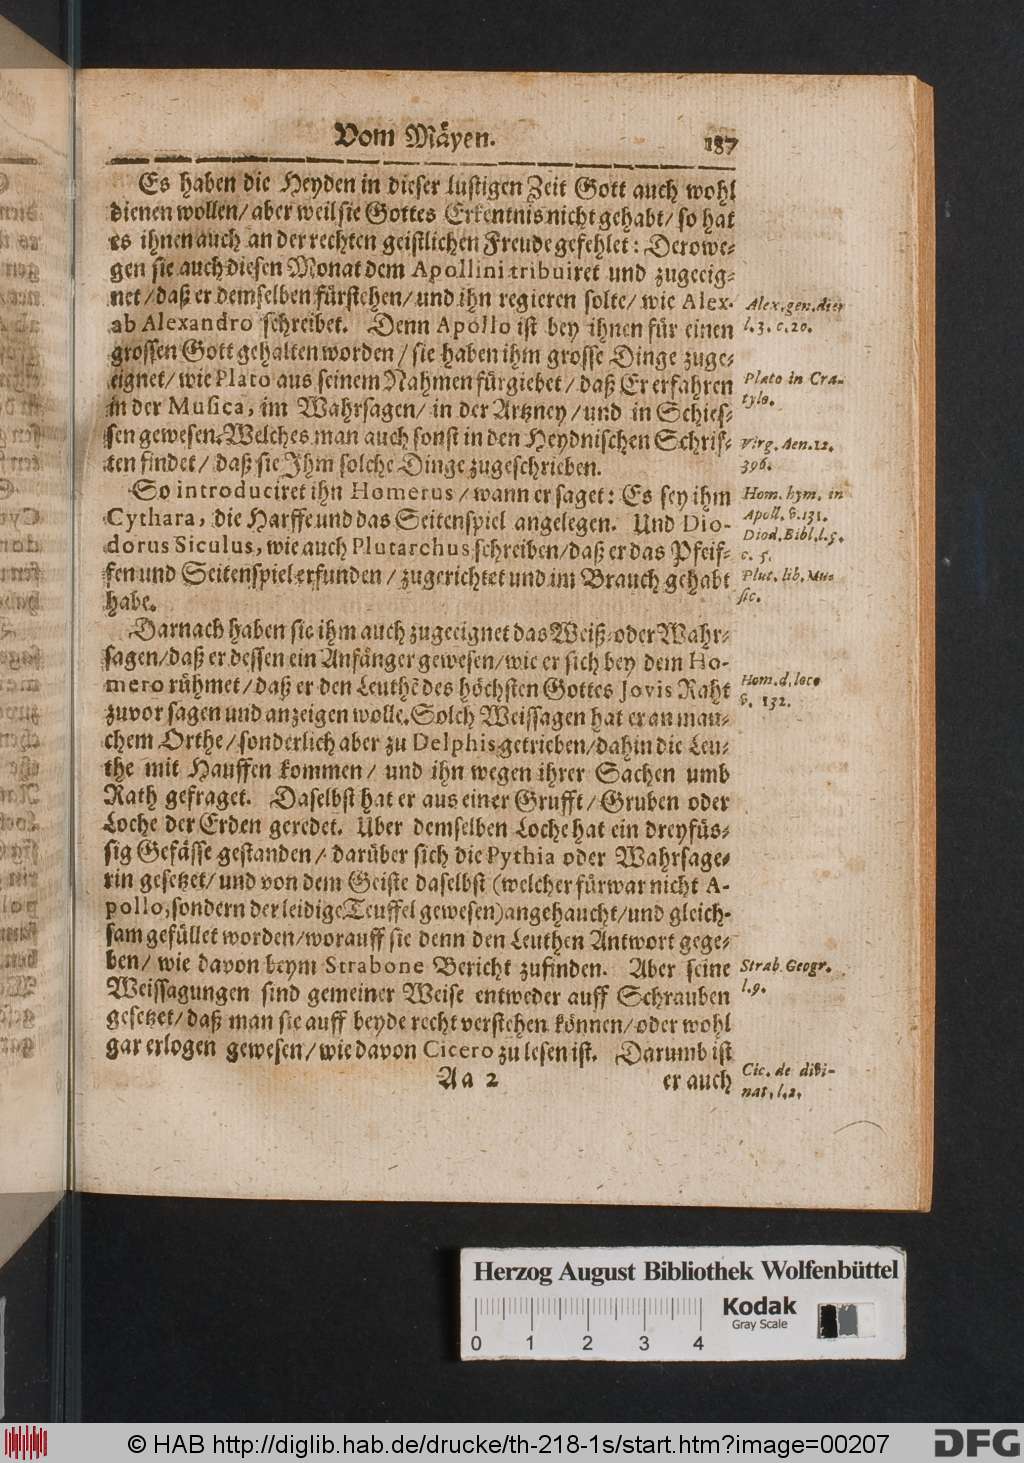 Vom Mäyen.
187
Es haben die Heyden in dieser lustigen Zeit Gott auch wohl
dienen wollen/ aber weil sie Gottes Erkentnis nicht gehabt/ so hat
es ihnen auch an der rechten geistlichen Freude gefehlet: Derowe-
gen sie auch diesen Monat dem Apollini tribuiret und zugeeig-
net/ daß er demselben fürstehen/ und ihn regieren solte/ wie Alex.
ab Alexandro schreibet. Denn Apollo ist bey ihnen für einen
grossen Gott gehalten worden/ sie haben ihm grosse Dinge zuge-
eignet/ wie Plato aus seinem Nahmen fürgiebet/ daß Er erfahren
in der Musica, im Wahrsagen/ in der Artzney/ und in Schies-
sen gewesen. Welches man auch sonst in den Heydnischen Schrif-
ten findet/ daß sie Ihm solche Dinge zugeschrieben.
So introduciret ihn Homerus/ wann er saget: Es sey ihm
Cythara, die Harffe und das Seitenspiel angelegen. Und Dio-
dorus Siculus, wie auch Plutarchus schreiben/ daß er das Pfeif-
fen und Seitenspiel erfunden/ zugerichtet und im Brauch gehabt
habe.
Darnach haben sie ihm auch zugeeignet das Weiß- oder Wahr-
sagen/ daß er dessen ein Anfänger gewesen/ wie er sich bey dem Ho-
mero rühmet/ daß er den Leuthē des höchsten Gottes Jovis Raht
zuvor sagen und anzeigen wolle. Solch Weissagen hat er an man-
chem Orthe/ sonderlich aber zu Delphis getrieben/ dahin die Leu-
the mit Hauffen kommen/ und ihn wegen ihrer Sachen umb
Rath gefraget. Daselbst hat er aus einer Grufft/ Gruben oder
Loche der Erden geredet. Uber demselben Loche hat ein dreyfüs-
sig Gefässe gestanden/ darüber sich die Pythia oder Wahrsage-
rin gesetzet/ und von dem Geiste daselbst (welcher fürwar nicht A-
pollo, sondern der leidige Teuffel gewesen) angehaucht/ und gleich-
sam gefüllet worden/ worauff sie denn den Leuthen Antwort gege-
ben/ wie davon beym Strabone Bericht zufinden. Aber seine
Weissagungen sind gemeiner Weise entweder auff Schrauben
gesetzet/ daß man sie auff beyde recht verstehen können/ oder wohl
gar erlogen gewesen/ wie davon Cicero zu lesen ist. Darumb ist
Aa 2
er auch
Alex. gen. dier
l. 3. c. 20.
Plato in Cra-
tylo.
Virg. Aen. 12.
396.
Hom. hym. in
Apoll. §. 131.
Diod. Bibl. l. 5.
c. 5.
Plut. lib. Mu-
sic.
Hom. d. loco
§. 132.
Strab. Geogr.
l. 9.
Cic. de divi-
nat. l. 2.
Herzog August Bibliothek Wolfenbüttel
Kodak
Gray Scale
0 1 2 3 4
© HAB http://diglib.hab.de/drucke/th-218-1s/start.htm?image=00207
DFG